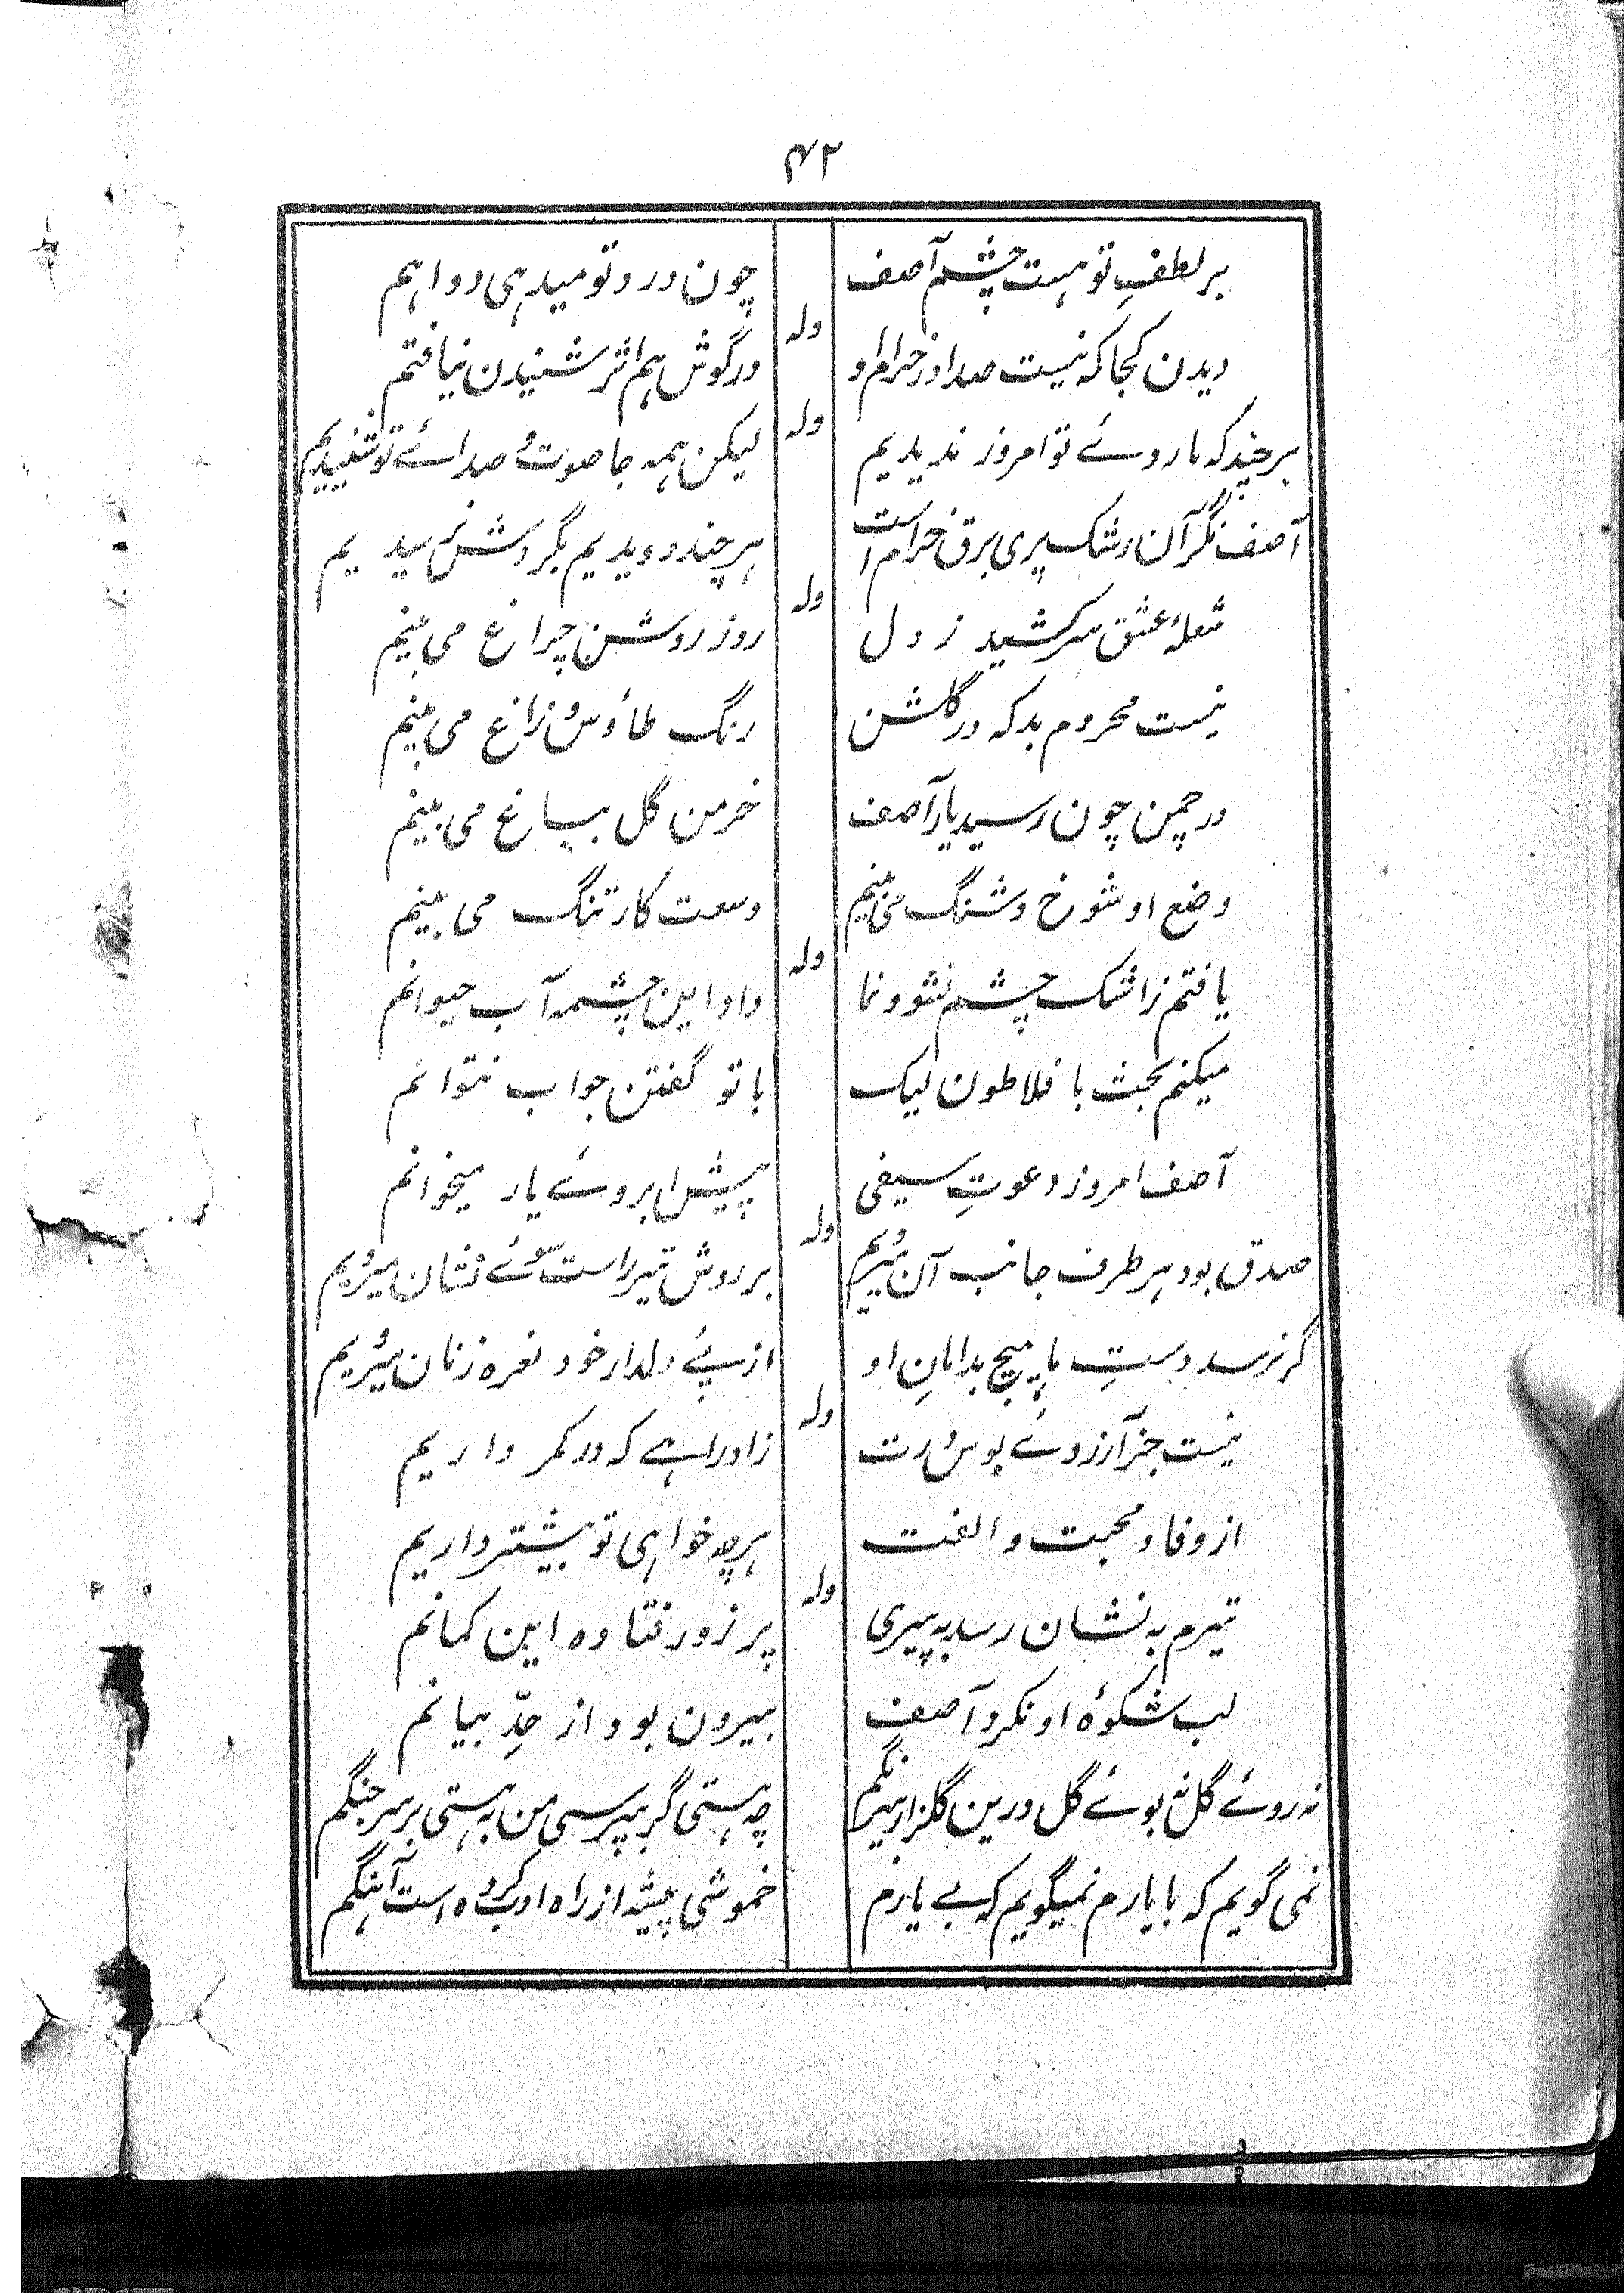 ۴۲
بر لطفِ تو ہست چشم آصف
چون درد تو میدہی دوا ہم
ولہ
دیدن کجا کہ نیست صدا از خرام او
در گوش ہم اثر شنیدن نیافتم
ولہ
ہر چند کہ ما روئے تو امروز ندیدیم
لیکن ہمہ جا صوت و صدائے تو شنیدیم
آصف نگر آن رشک پری برق خرام است
ہر چند دویدیم بگردش نرسیدیم
ولہ
شعلۂ عشق سر کشید ز دل
روز روشن چراغ می بینم
نیست محروم بد کہ در گلشن
رنگ طاؤس و زاغ می بینم
در چمن چون رسید یار آصف
خرمن گل بباغ می بینم
وضع او شوخ و شنگ می بینم
وسعت کار تنگ می بینم
ولہ
یافتم ز اشک چشم نشو و نما
داد این چشمہ آب حیوانم
میکنم بحث با فلاطون لیک
با تو گفتن جواب نتوانم
آصف امروز دعوتِ سیفی
پیش ابروئے یار میخوانم
ولہ
صدق بود ہر طرف جانب آن میرویم
بر روش تیر راست سوئے نشان میرویم
گر نرسد دستِ ما ہیچ بدامانِ او
از پئے دلدار خود نعرہ زنان میرویم
ولہ
نیست جز آرزوئے بوس و رت
زاد راہے کہ در کمر داریم
از وفا و محبت و الفت
ہر چہ خواہی تو بیشتر داریم
ولہ
تیرم بہ نشان رسد بہ پیری
پر زور فتادہ این کمانم
لب شکوۂ او نکرد آصف
بیرون بود از حدِّ بیانم
نہ روئے گل نہ بوئے گل درین گلزار نیرنگم
چہ ہستی گر بپرسی من بہ ہستی بر سر جنگم
نمی گویم کہ با یارم نمیگویم کہ بے یارم
خموشی پیشہ از راہ ادب کردہ است آہنگم